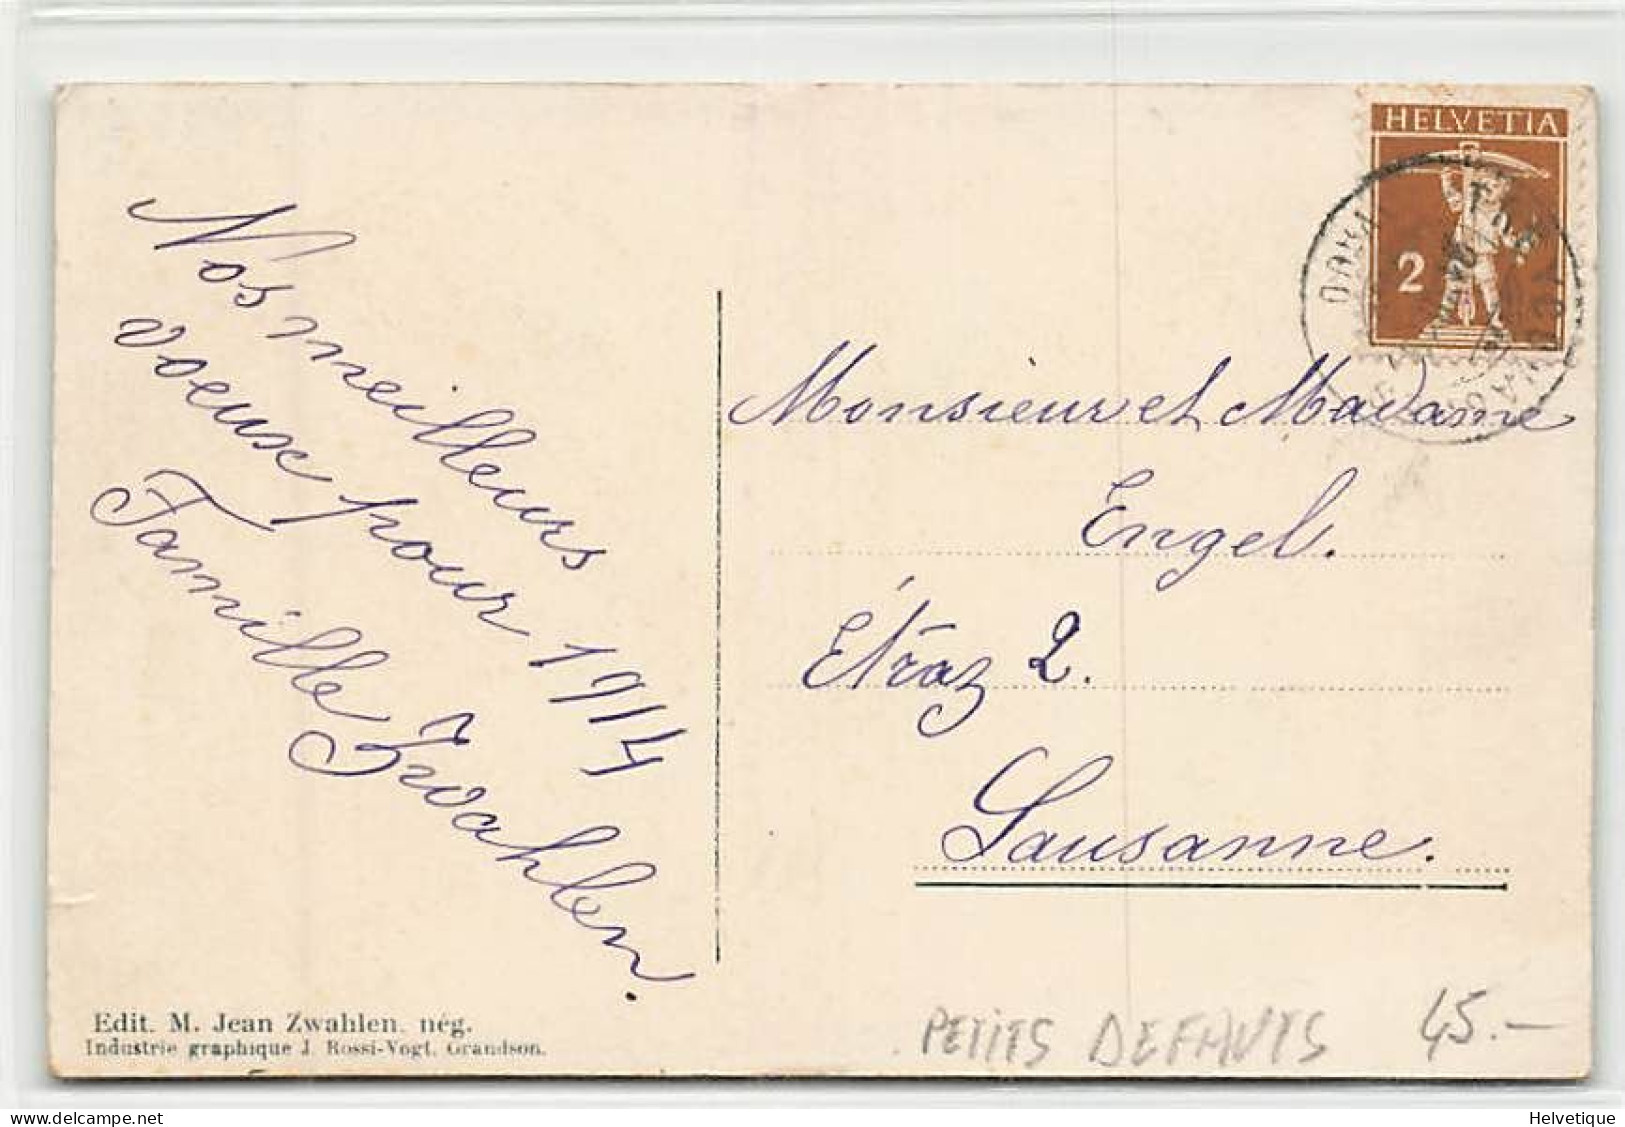 HELVETIA
2
Nos meilleurs
voeux pour 1914
Famille Zwahlen.
Monsieur et Madame
Engel.
Étraz 2.
Lausanne.
Edit. M. Jean Zwahlen. nég.
Industrie graphique J. Rossi-Vogt. Grandson.
PETITS DEFAUTS 45.—
Helvetique